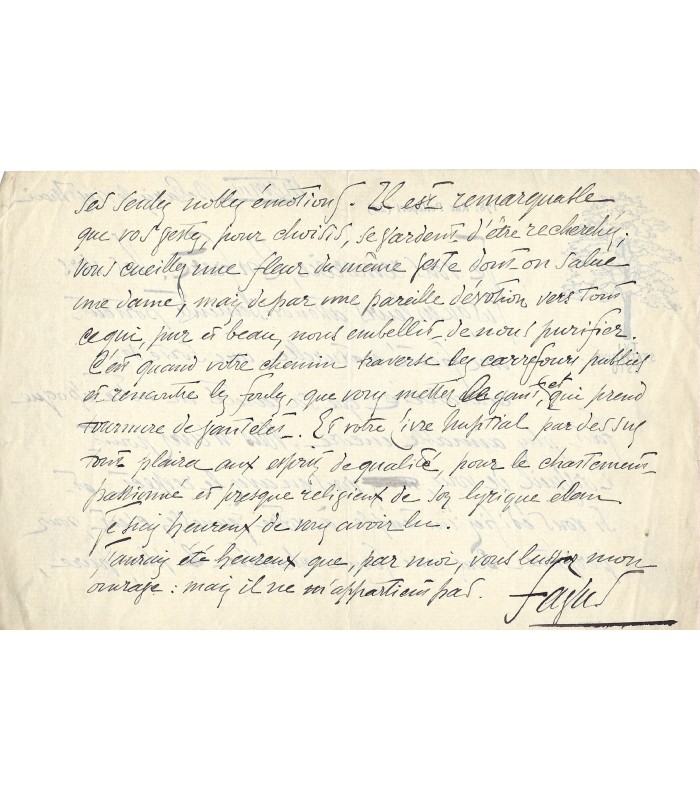 ses seules nobles émotions. Il est remarquable
que vos gestes, pour choisis, se gardent d'être recherchés.
vous cueillez une fleur du même geste dont on salue
une dame, mais de par une pareille dévotion vers tout
ce qui, pur et beau, nous embellit de nous purifier.
C'est quand votre chemin traverse les carrefours publics
et rencontre les foules, que vous mettez le gant, et qui prend
tournure de gantelet. Et votre livre nuptial par dessus
tout plaira aux esprits de qualité, pour le chastement
passionné et presque religieux de son lyrique élan
Je suis heureux de vous avoir lu.
J'aurais été heureux que, par moi, vous lussiez mon
ouvrage : mais il ne m'appartient pas. Fagus